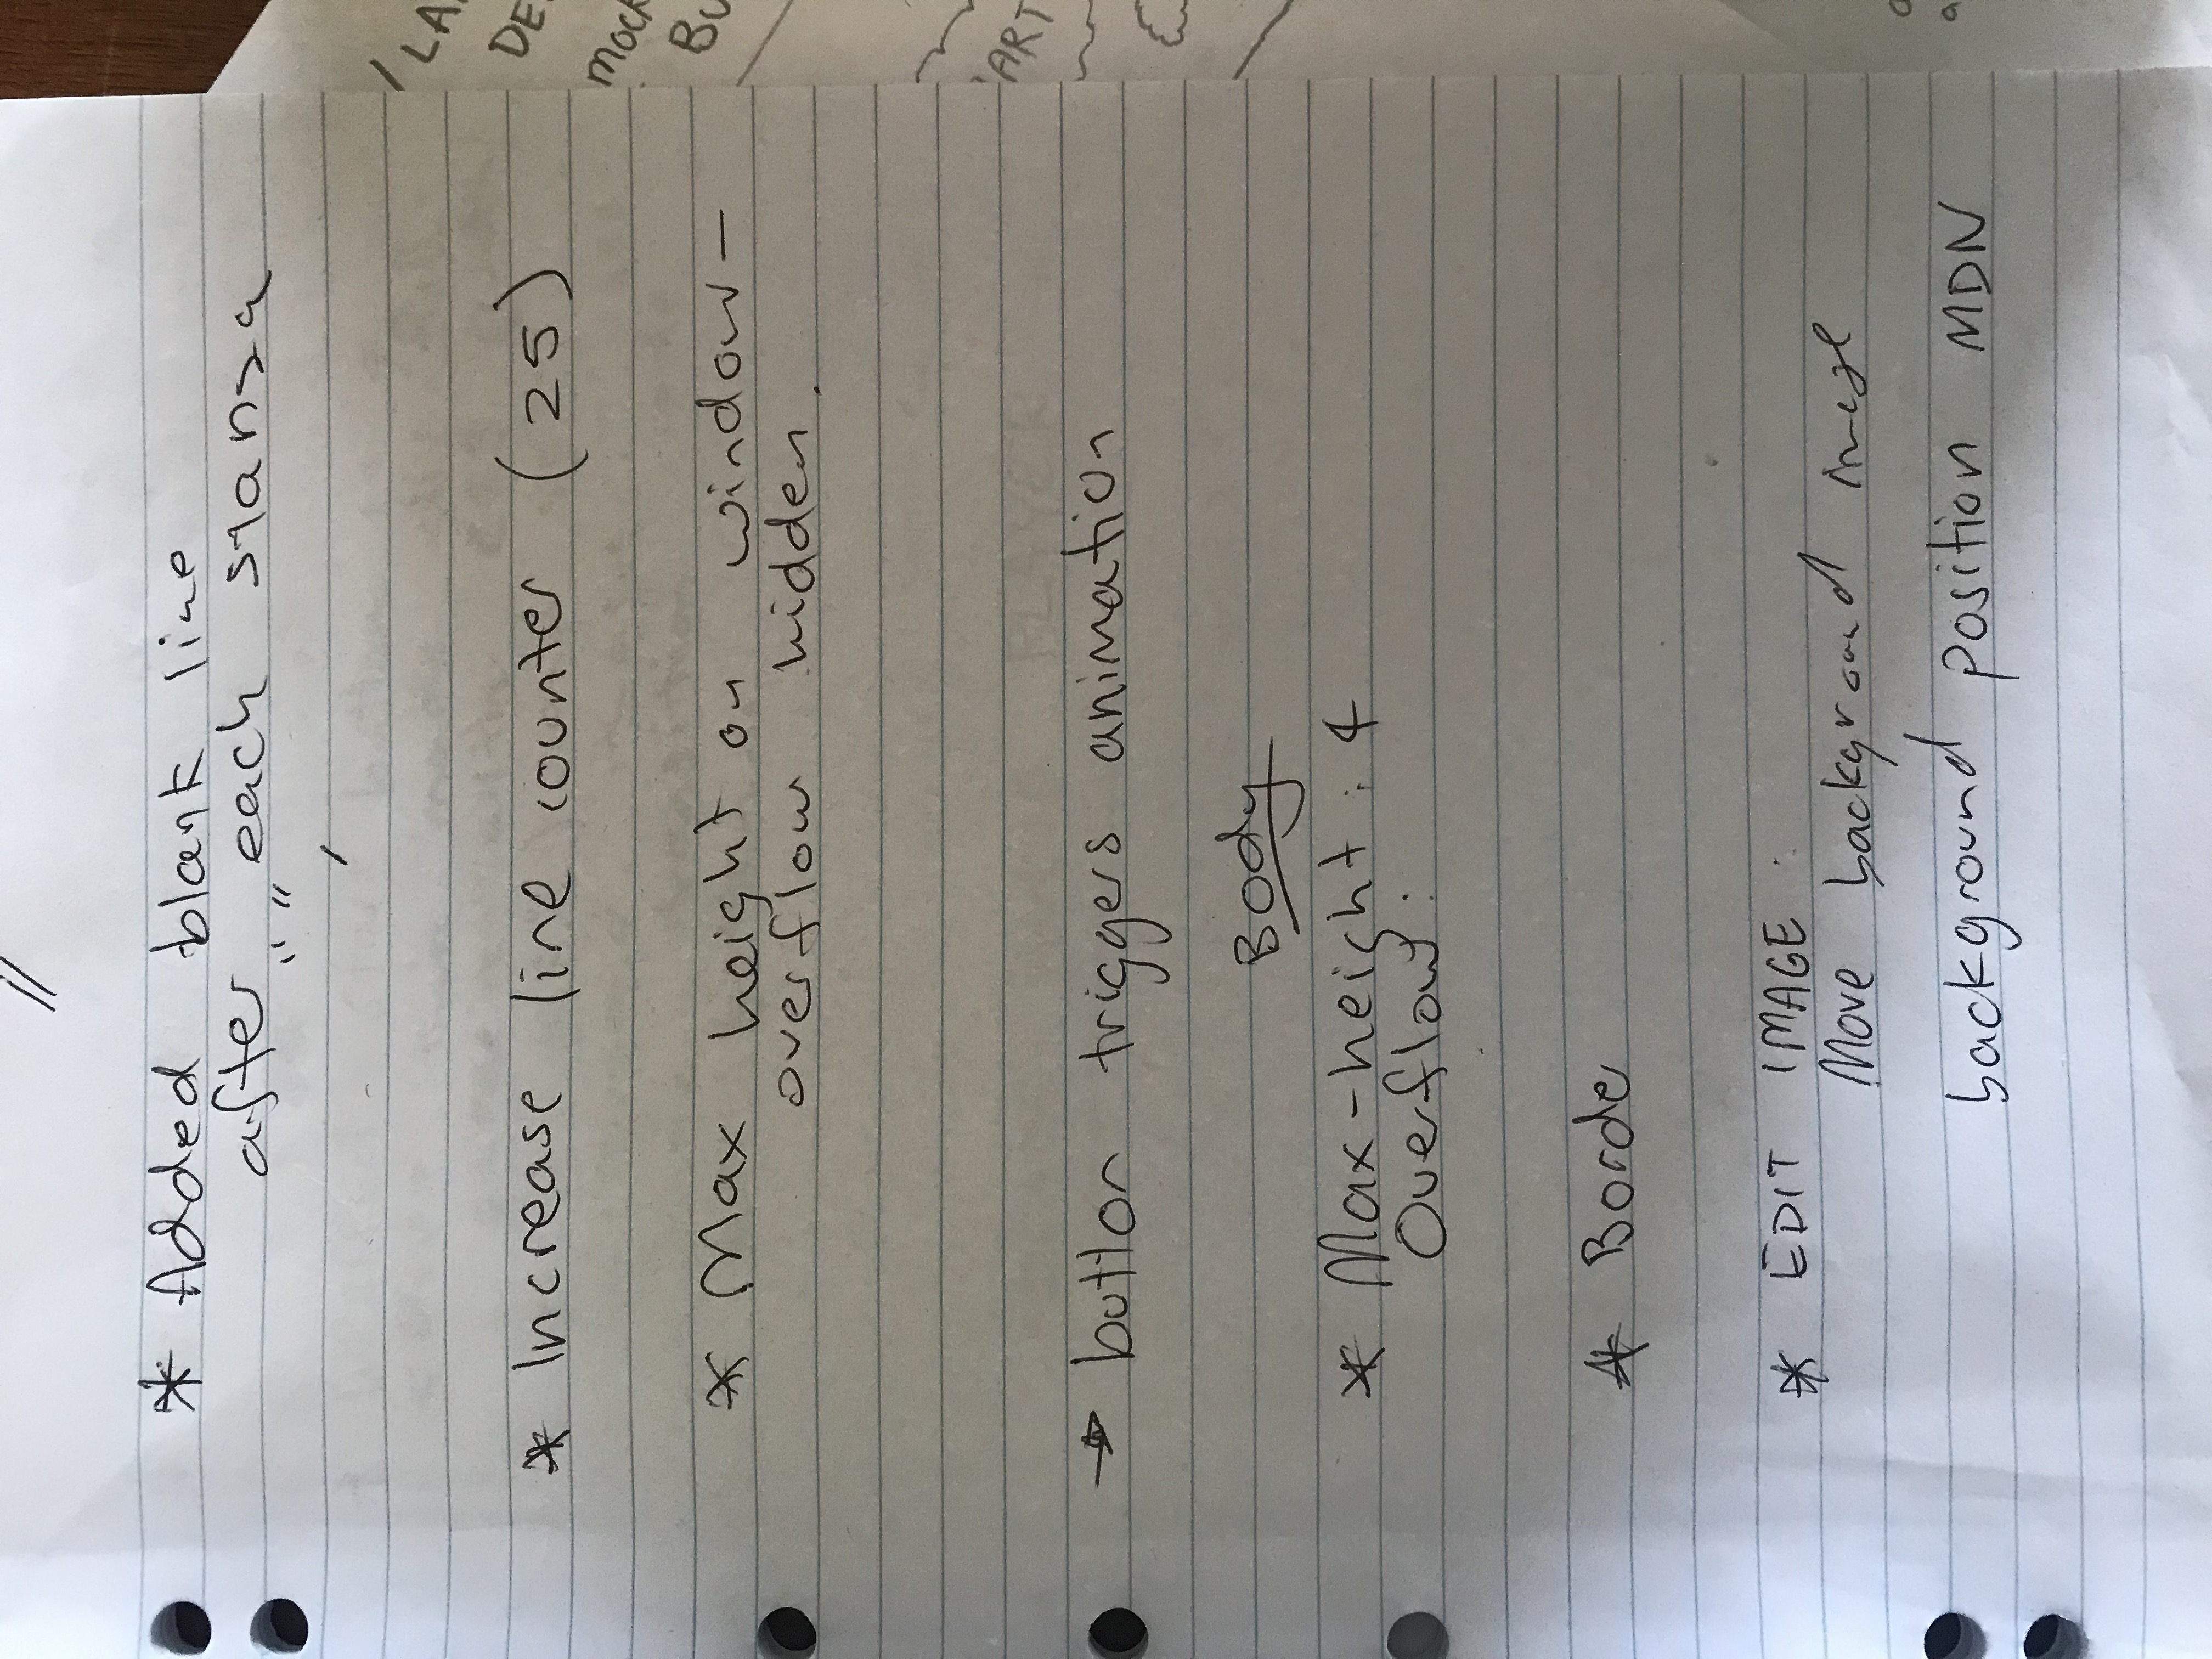 //
* Added blank line
after each stanza
" "
,
* Increase line counter (25)
* Max height on window -
overflow hidden.
→ button triggers animation
Body
* Max-height : 4
Overflow :
* Borde
* EDIT IMAGE :
Move background image
background position MDN
LA
DE
mock
Bu
ART